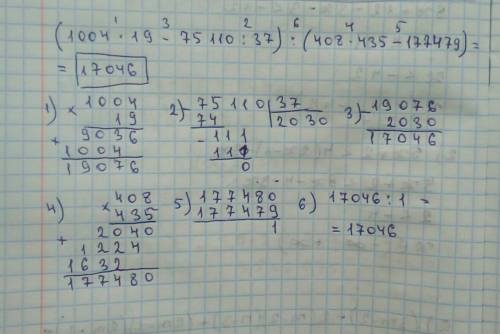 1 3 2 6 4 5
(1004 · 19 - 75110 : 37) : (408 · 435 - 177479) =
= 17046
1) × 1004
19
+ 9036
1004
19076
2) - 75110 | 37
74 | 2030
- 111
111
0
3) - 19076
2030
17046
4) × 408
435
+ 2040
1224
1632
177480
5) - 177480
177479
1
6) 17046 : 1 =
= 17046